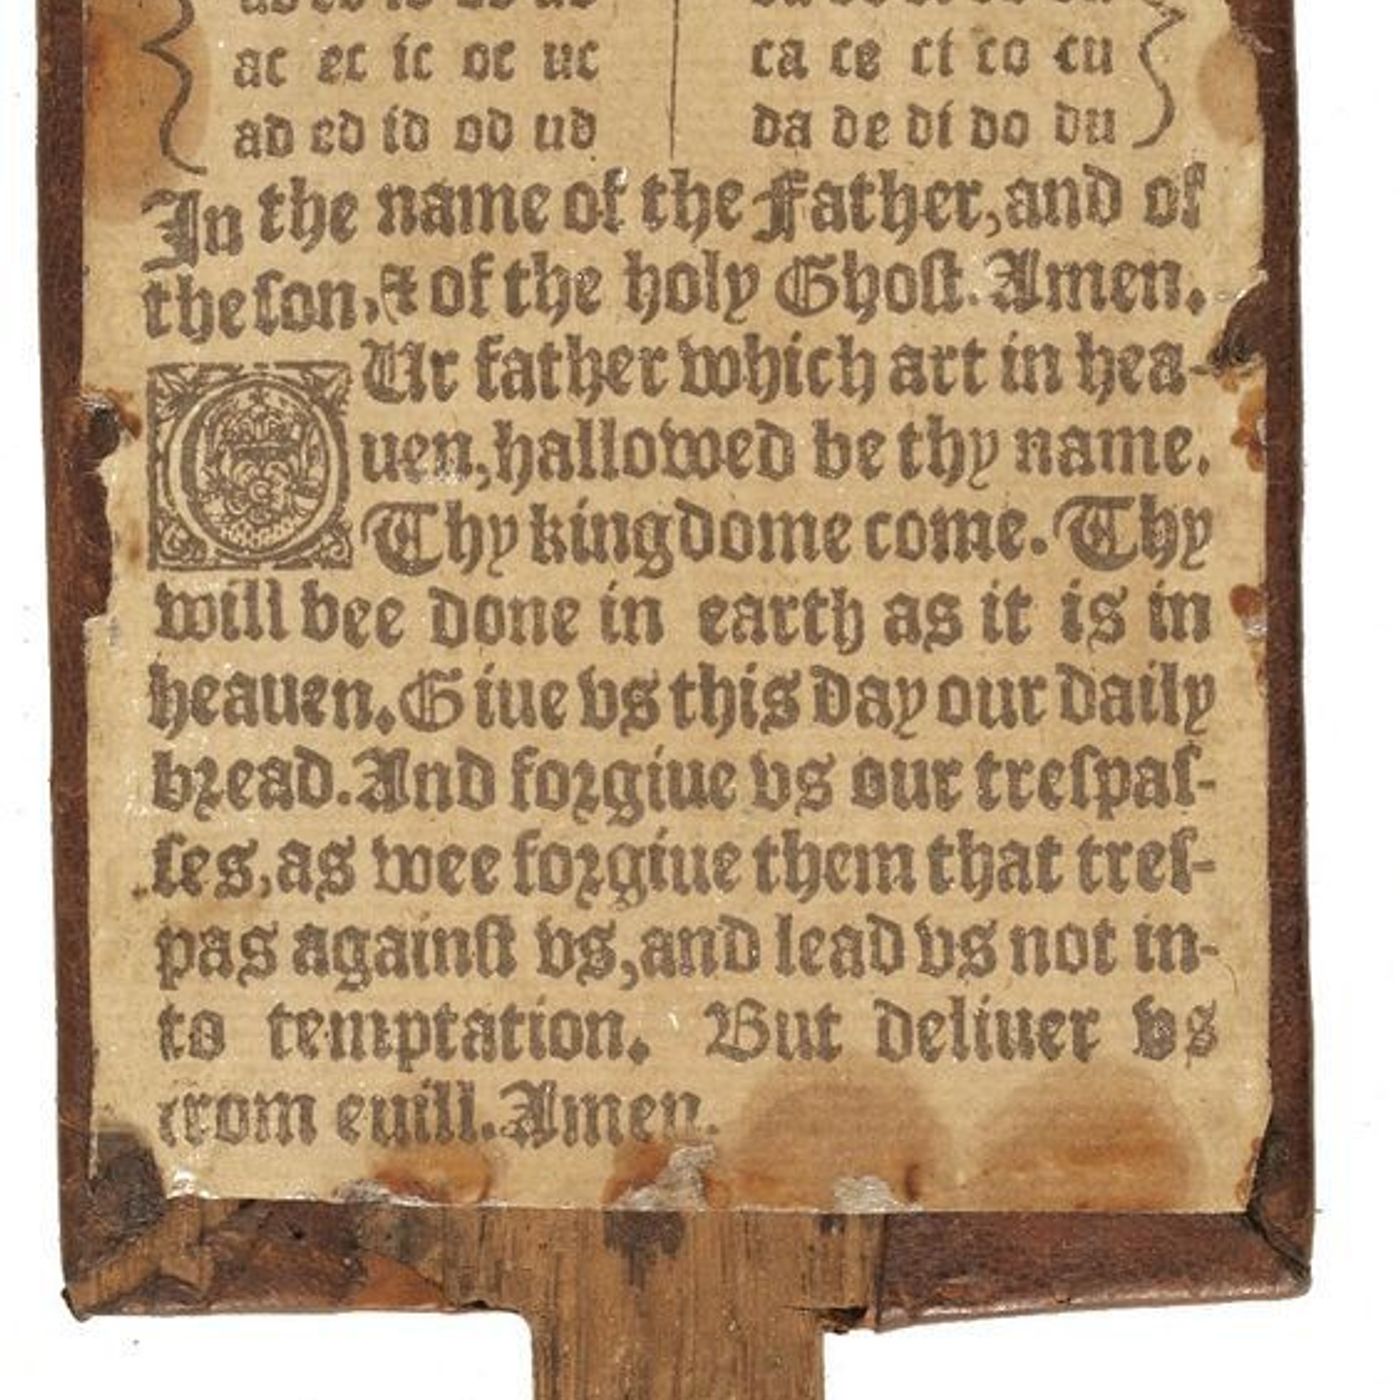 ac ec ic oc uc ca ce ci co cu
ad ed id od ud da de di do du
In the name of the Father, and of
the ſon, & of the holy Ghoſt. Amen.
OUr father which art in hea-
uen, hallowed be thy name.
Thy kingdome come. Thy
will bee done in earth as it is in
heauen. Giue vs this day our daily
bꝛead. And foꝛgiue vs our treſpaſ-
ſes, as wee foꝛgiue them that treſ-
pas againſt vs, and lead vs not in-
to temptation. But deliuer vs
from euill. Amen.